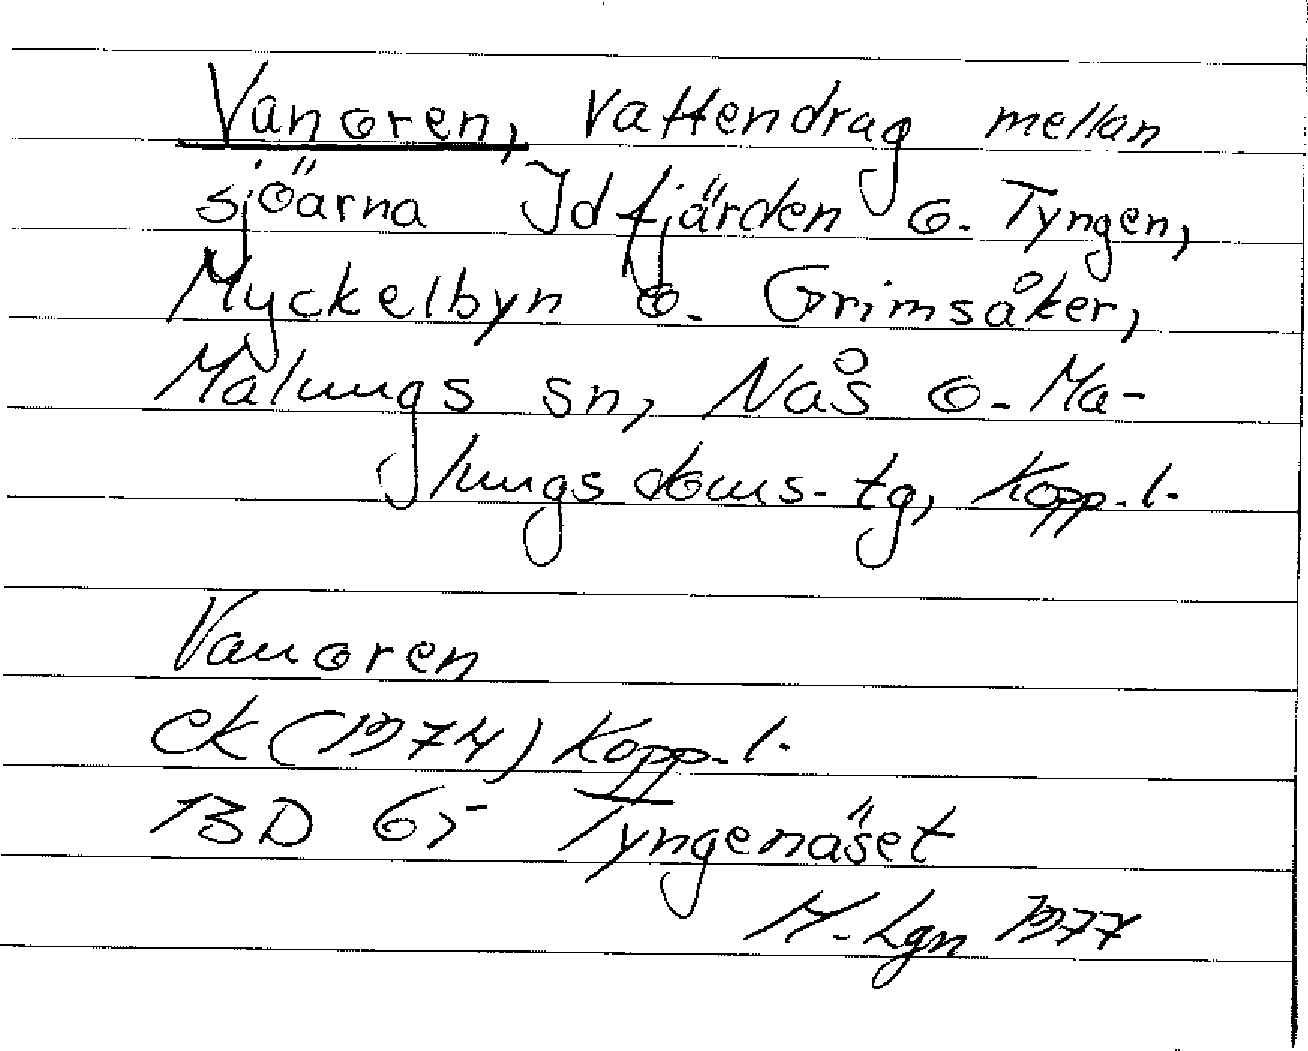 Vanoren, vattendrag mellan
sjöarna Idfjärden o. Tyngen,
Myckelbyn o. Grimsåker,
Malungs sn, Nås o. Ma-
lungs doms. tg, Kopp. l.
Vanoren
ek (1974) Kopp. l.
13D 65 Tyngenäset
M. Lgn 1977